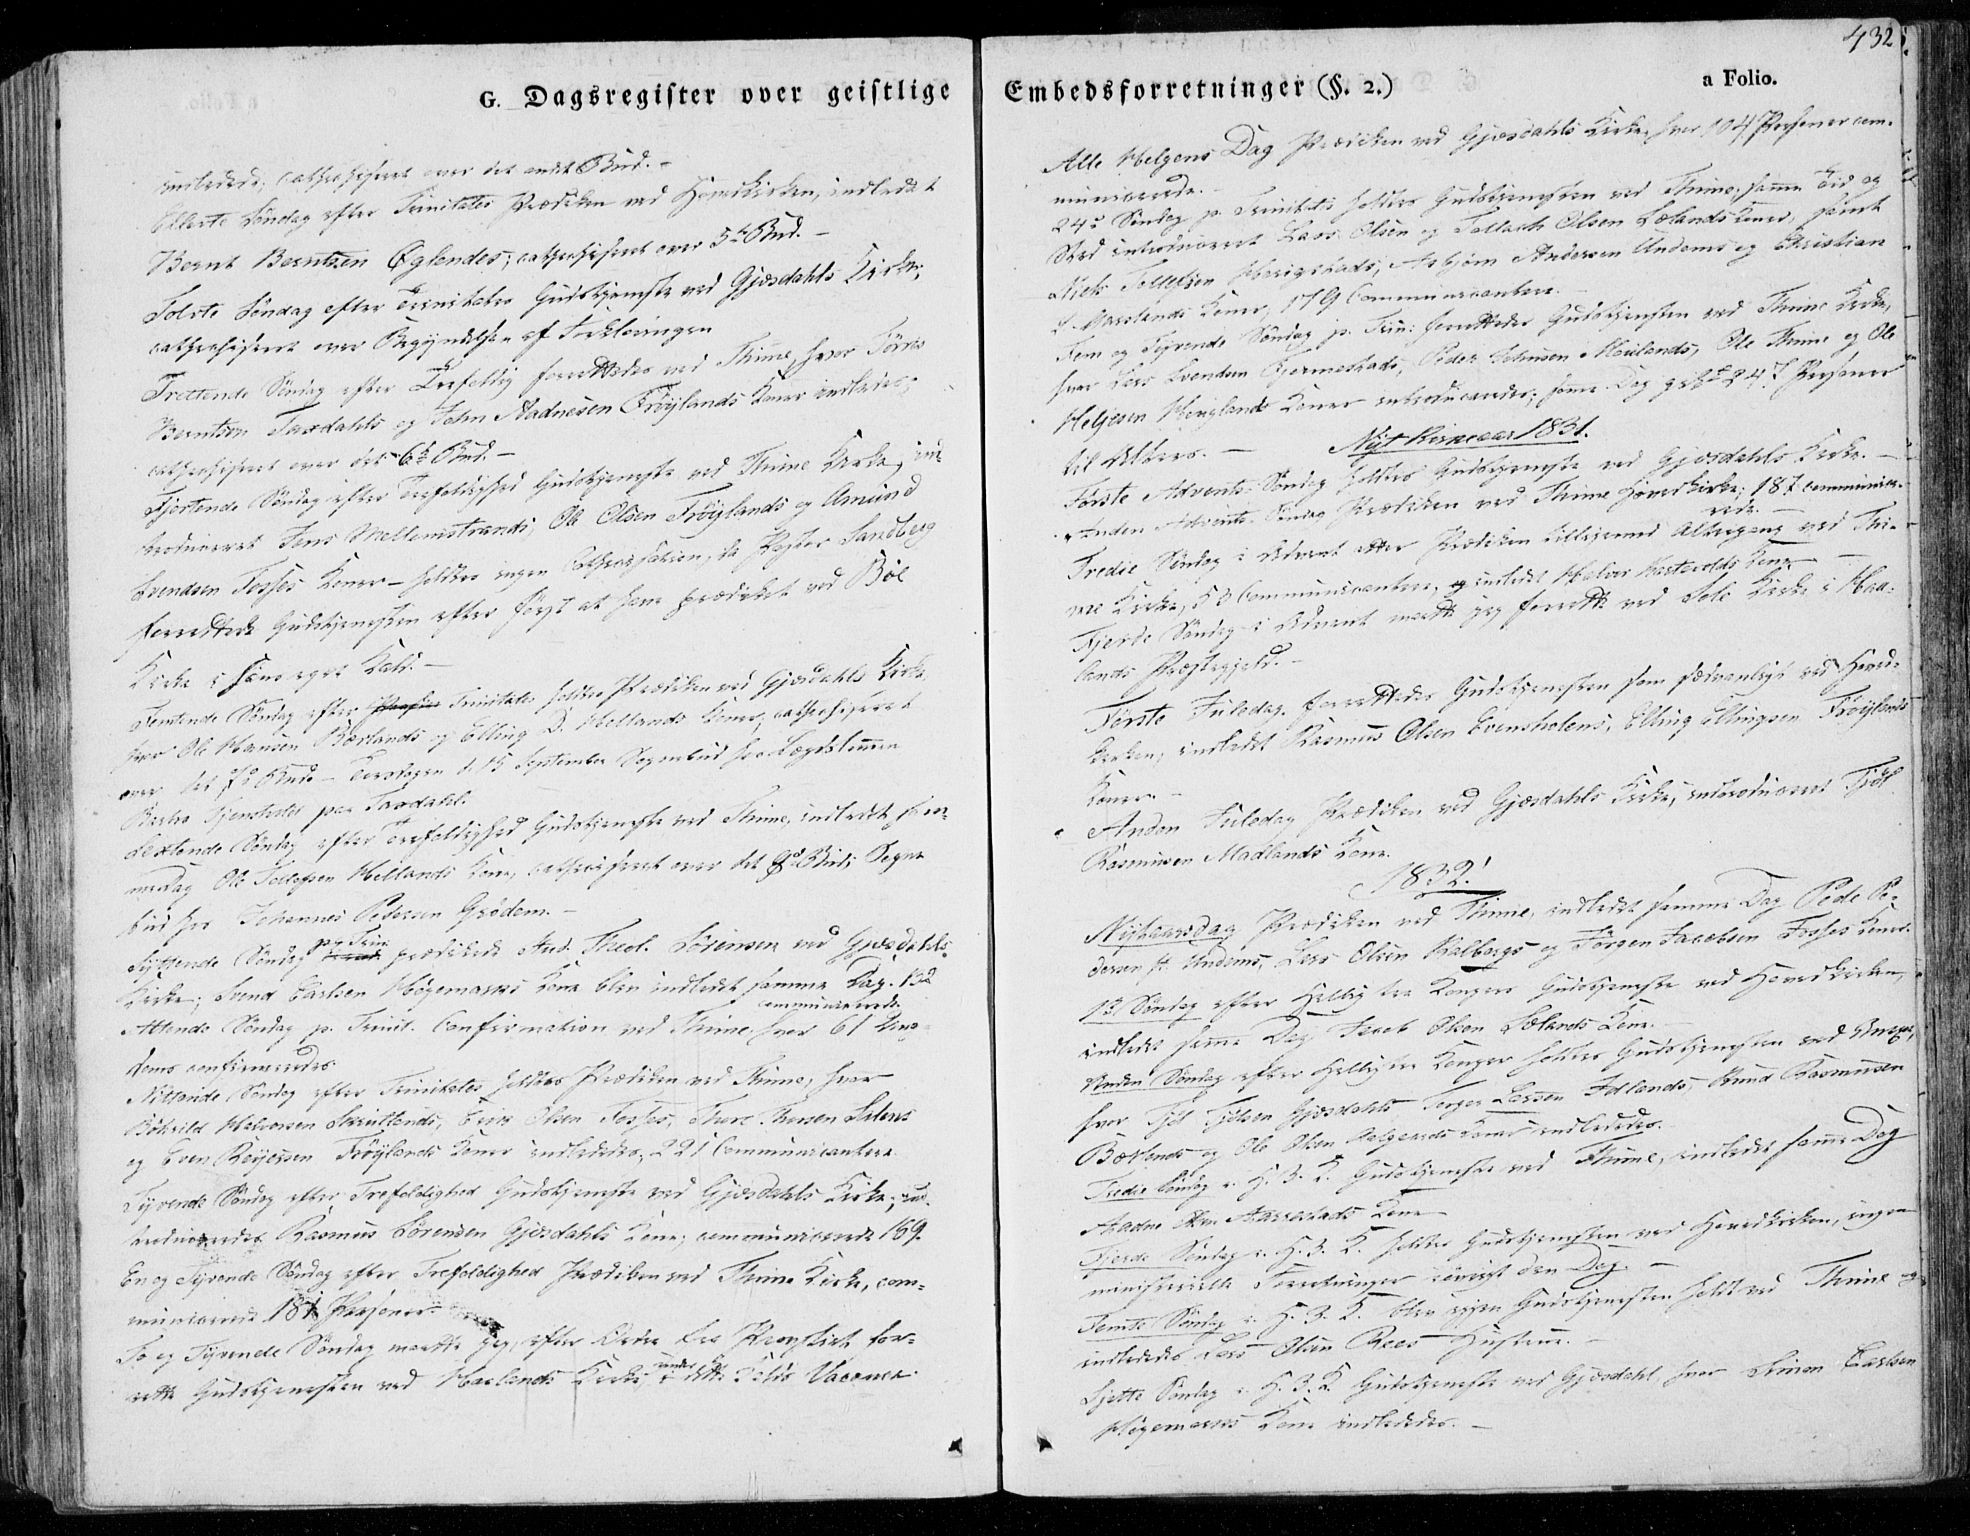 G. Dagsregister over geistlige
indledede; cathechiseret over det andet Bud.-
Ellevte Søndag efter Trinitatis Prædiken ved Hovedkirken, indledet
Bernt Berntsen Øglendes; cathechiseret over 5te Bud.-
Tolvte Søndag efter Trinitatis Gudstjeneste ved Gjæsdahls Kirke;
cathechiseret over Begyndelsen af Forklaringen
Trettende Søndag efter Trefoldig forrettedes ved Thime, hvor Tørres
Berntsen Taxdahls og John Aadnesen Frøylands Koner indledes;
cathechiseret over det 6te Bud.-
Fjortende Søndag efter Trefoldighed Gudstjeneste ved Thime Kirke, in-
troduceret Jens Mellemstrands, Ole Olsen Frøylands og Amund
Svendsen Fosses Koner - holdtes ingen Cathechisation, da Pastor Sandberg
forrettede Gudstjenesten efter først at have prædiket ved Bøe
Kirke i hans eget Kald.-
Femtende Søndag efter Trinitatis holdtes Prædiken ved Gjæsdahls Kirke
hvor Ole Hansen Bærlands og Elling D. Hollands Koner; cathechiseret
over det 7de Bud - Torsdagen d. 15 September Sognebud hos Lægdslemmen
Bertha paa Taxdahl.
Sextende Søndag efter Trefoldighed Gudstjeneste ved Thime, indledet sam-
me Dag Ole Tollefsen Hellands Kone, cathechiseret over det 8de Bud; Sogne
bud hos Johannes Pedersen Grødem.-
Syttende Søndag p. Trin: prædikede Stud. Theol. Sørensen ved Gjæsdahls
Kirke; Svend Carlsen Høgemarks Kone blev indledet samme Dag.
communicerede.
Attende Søndag p. Trinit. Confirmation ved Thime, hvor 61 Ung-
doms confirmeredes.
Nittende Søndag efter Trinitatis holdtes Prædiken ved Thime, hvor
Halvorsen Skrutlands, Erik Olsen Fosses, Thore Thorsen
og Even Reyersen Frøylands Koner indledede, 221 Communicantere
Tyvende Søndag efter Trefoldighed Gudstjeneste ved Gjæsdahls Kirke, in-
troduceredes Rasmus Sørensen Gjesdahls Kone; communicerede 169.
En og Tyvende Søndag efter Trefoldighed Prædiken ved Thime Kirke, com-
municerede 187 Personer-
To og Tyvende Søndag maatte jeg, efter Ordre fra Provstiet for-
rette Gudstjenesten ved Haalands Kirke under dette Kalds Vacance.
432
Embedsforretninger (§. 2.)
a Folio.
Alle Helgens Dag Prædiken ved Gjæsdahls Kirke, hvor 104 Personer com-
municerede.-
24de Søndag p. Trinitatis holdtes Gudstjenesten ved Thime, samme Tid og
Sted introduceret Lars Olsen og Tallach Olsen Lælands Koner, samt
Niels Tollefsen Herigstads, Asbjørn Andersen Undems og Christian
Koner, 179 Communicantere.-
Fem og Tyvende Søndag p. Trin: forrettedes Gudstjenesten ved Thime Kirke,
hvor Lars Svendsen Gjermestads, Peder Johnsen Houlands, Ole Thime og Ole
Helgesen Høylands Koner introduceredes; samme Dag 247 Personer
til Alters.- Nyt Kirkeaar 1831.
Første Advents-Søndag holdtes Gudstjeneste ved Gjæsdahls Kirke.-
Anden Advents-Søndag Prædiken ved Thime Hovedkirke; 187 communice-
rede.-
Tredie Søndag i Advent atter Prædiken tilligemed Altergang ved Thi-
me Kirke, 53 Communicantere, og indledet Halvor Kone-
Fjerde Søndag i Advent maatte jeg forrette ved Sole Kirke i Haa-
lands Præstegjeld.-
Første Juledag. forrettedes Gudstjenesten som sædvanligt ved Hoved-
kirken; indledet Rasmus Olsen Evensholens, Elling Ellingsen Frøylands
Koner.-
Anden Juledag Prædiken ved Gjæsdahls Kirke, introduceret Tjøl
Rasmussen Madlands Kone.
1832.
Nytaarsdag Prædiken ved Thime, indledet samme Dag Peder Pe-
dersen Undems, Lars Olsen Kalbergs og Jørgen Jacobsen Fosses Koner.
1ste Søndag efter Hellig tre Konger Gudstjeneste ved Hovedkirken,
indledet samme Dag Jacob Olsen Lælands Kone.-
Anden Søndag efter Hellig tre Konger holdtes Gudstjenesten ved Annexet,
hvor Tjøl Tjølsen Gjæsdahls Torger Larsen Idlands, Amund Rasmussen
Bærlands og Ole Olsen Aalgaards Koner indlededes.
Tredie Søndag e. H. 3. K. Gudstjeneste ved Thime, indledet samme Dag
Aadne Olsen Aarrestads Kone
Fjerde Søndag e. H. 3. K. holdtes Gudstjenesten ved Hovedkirken, ingen
ministerielle Forretninger iøvrigt den Dag.-
Femte Søndag e. H. 3. K. blev igjen Gudstjenesten holdt ved Thime og
indledede Lars Olsen Rees Hustrue.-
Sjette Søndag e. H. 3. K. Gudstjeneste ved Gjæsdahl, hvor Simon Carlsen
Høgemarks Kone indlededes.-